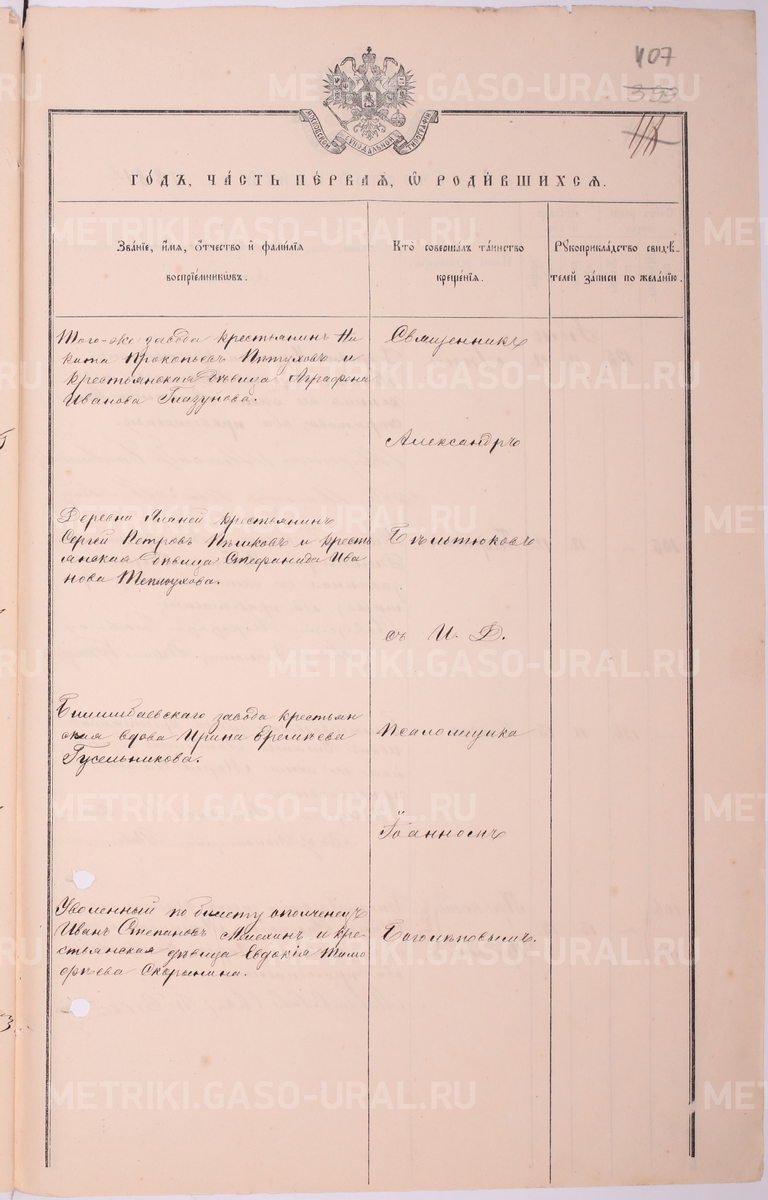 407
399
МОСКОВСКОЙ СѴНОДАЛЬНОЙ ТИПОГРАФІИ
ГО́ДЪ, ЧА́СТЬ ПЕ́РВАЯ, Ѡ҆ РОДИ́ВШИХСЯ.
Зва́ніе, и҆́мя, ѻ҆́тчество и҆ фами́лія
воспріе́мникѡвъ.
Кто̀ соверша́лъ та́инство
креще́нія.
Рꙋкоприкла́дство свидѣ́-
телей за́писи по жела́нію.
Того-же завода крестьянинъ Ни
кита Прокопьевъ Пѣтуховъ и
крестьянская дѣвица Аграфена
Иванова Глазунова.
Священникъ
Александръ
Деревни крестьянинъ
Сергей Петровъ и кресть
янская дѣвица Стефанида Ива
нова Теплоухова.
Бѣльтюковъ
съ И. Д.
Билимбаевскаго завода крестьян
ская вдова Ирина Еремѣева
Гусельникова.
Псаломщика
Іоанномъ
Уволенный по билету ополченецъ
Иванъ Степановъ и кре
стьянская дѣвица Евдокія Тимо
ѳеева Скорынина.
Боголѣповымъ.
METRIKI.GASO-URAL.RU